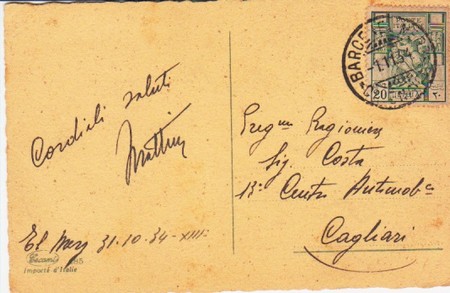 Cordiali saluti
El Merg 31-10-34-XIII
265
Importé d'Italie
BARCE
-1.11.34
20
Preg.mo Ragioniere
Sig. Costa
13° Centro Automob.co
Cagliari